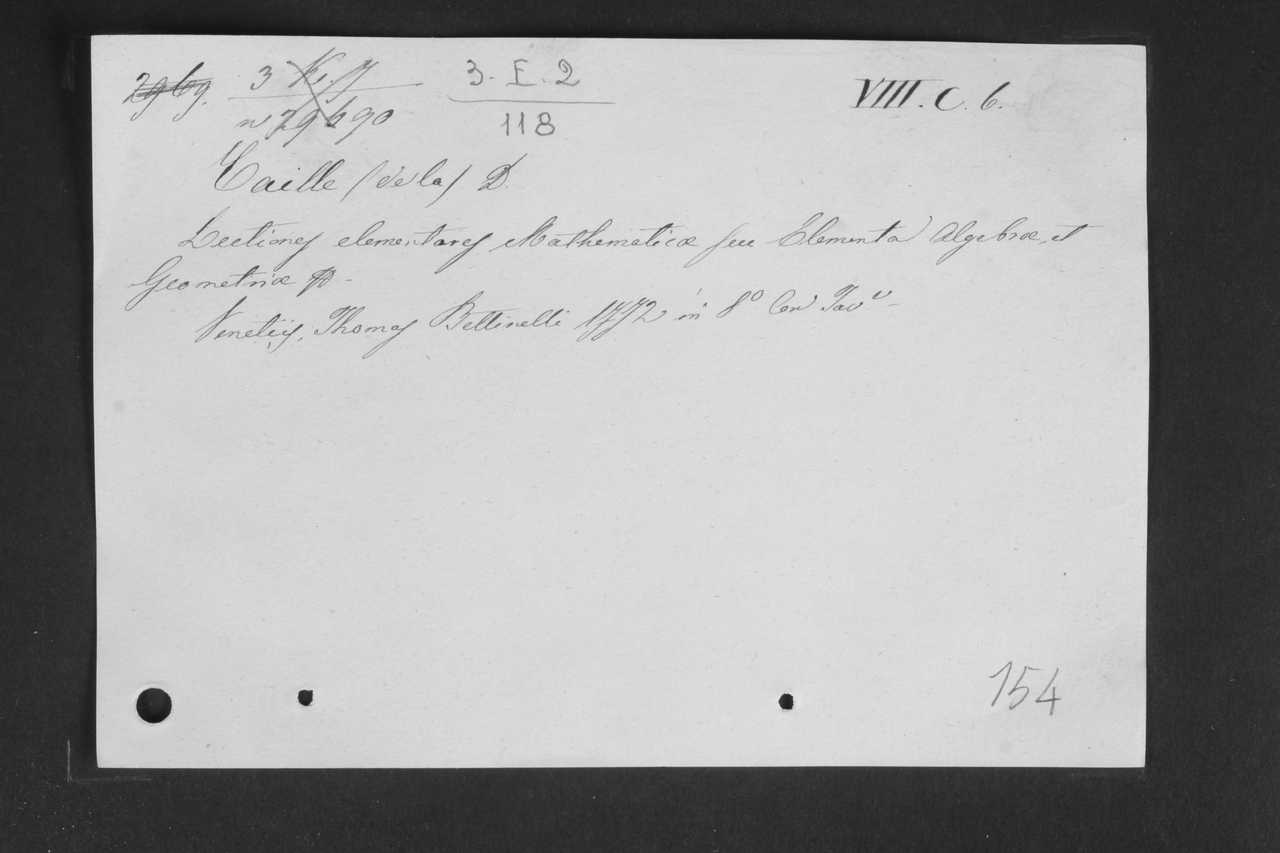 2969. 3 K. 7 3. E. 2 VIII. C. 6.
nº 29690 118
Caille (de la) D.
Lectiones elementares Mathematicæ seu Elementa Algebræ, et
Geometriæ
Venetiis, Thomas Bettinelli 1772 in 8º Con Tavᵉ
154